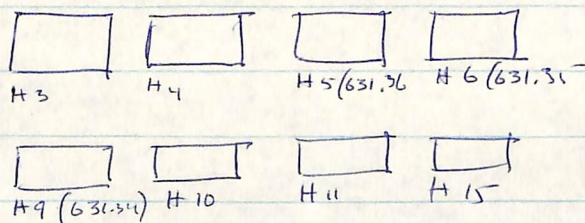 H 3 H 4 H 5 (631.36 H 6 (631.35
H 9 (631.34) H 10 H 11 H 15